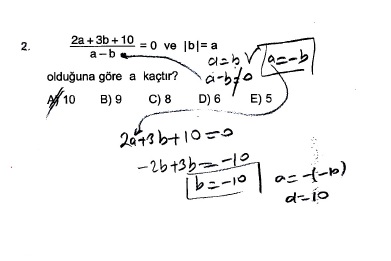 2. (2a+3b+10)/(a-b) = 0 ve |b|= a
a=b ✓ a=-b
a-b≠0
olduğuna göre a kaçtır?
A) 10 B) 9 C) 8 D) 6 E) 5
2a+3b+10=0
-2b+3b=-10
b=-10
a=-(-10)
a=10